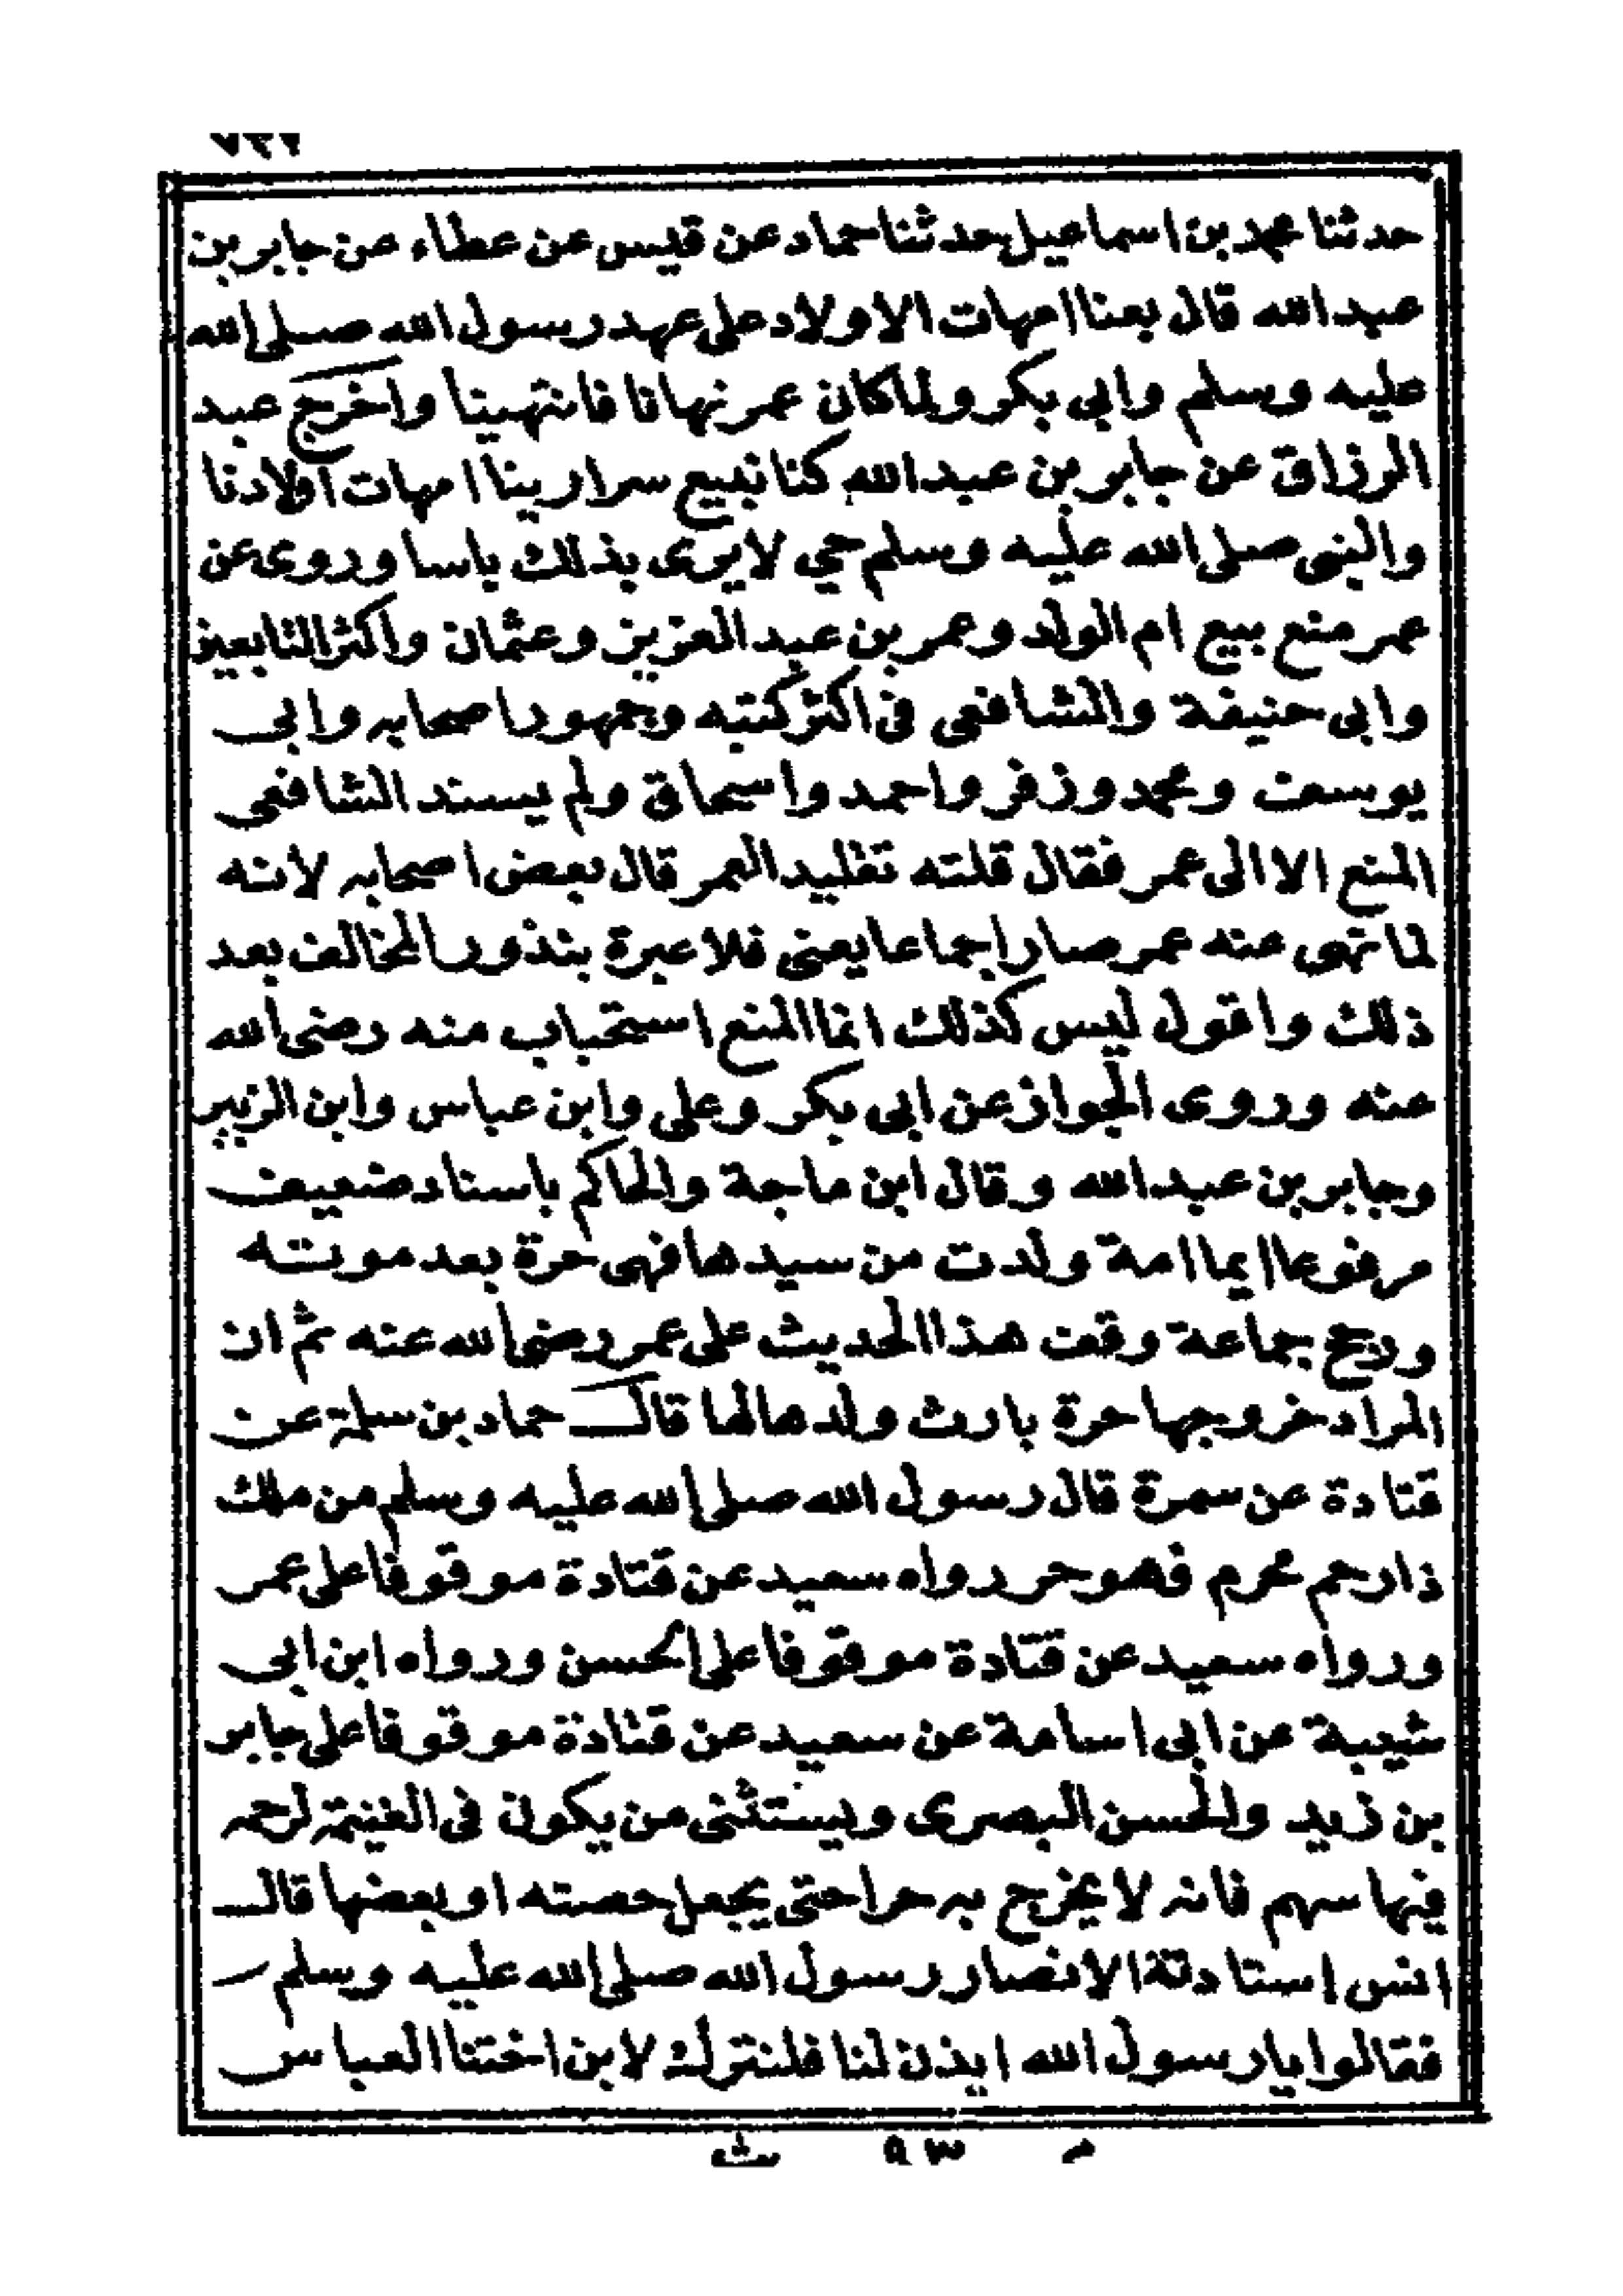 حدثنا محمد بن اسماعيل حدثنا حماد عن قيس عن عطاء عن جابر بن
عبد الله قال بعنا امهات الاولاد على عهد رسول الله صلى الله
عليه وسلم وابي بكر ولما كان عمر نهانا فانتهينا واخرج عبد
الرزاق عن جابر بن عبد الله كنا نبيع سرارينا امهات اولادنا
والنبى صلى الله عليه وسلم حي لا يرى بذلك باسا وروى عن
عمر منع بيع ام الولد وعمر بن عبد العزيز وعثمان واكثر التابعين
وابى حنيفة والشافعى فى اكثر كتبه وجمهور اصحابه وابى
يوسف ومحمد وزفر واحمد واسحاق ولم يسند الشافعى
المنع الا الى عمر فقال قلته تقليد العمر قال بعض اصحابه لانه
لما نهى عنه عمر صار اجماعا يعنى فلا عبرة بنذور المخالف بعد
ذلك واقول ليس كذلك انما المنع استحباب منه رضى الله
عنه وروى الجواز عن ابى بكر وعلى وابن عباس وابن الزبير
وجابر بن عبد الله وقال ابن ماجة والحاكم باسناد ضعيف
مرفوعا ايما امة ولدت من سيدها فهى حرة بعد موته
ورجح جماعة وقف هذا الحديث على عمر رضى الله عنه ثم ان
المراد خروجها حرة بارث ولدها لها قال حماد بن سلمة عن
قتادة عن سمرة قال رسول الله صلى الله عليه وسلم من ملك
ذا رحم محرم فهو حر رواه سعيد عن قتادة موقوفا على عمر
ورواه سعيد عن قتادة موقوفا على الحسن ورواه ابن ابى
شيبة عن ابى اسامة عن سعيد عن قتادة موقوفا على جابر
بن زيد والحسن البصرى ويستثنى من يكون فى الغنيمة لرحمه
فيها سهم فانه لا يخرج به حرا حتى يجعل حصته او بعضها قال
انس استادنة الانصار رسول الله صلى الله عليه وسلم
فقالوا يا رسول الله ايذن لنا فلنترك لابن اختنا العباس
م ٩٣ ث